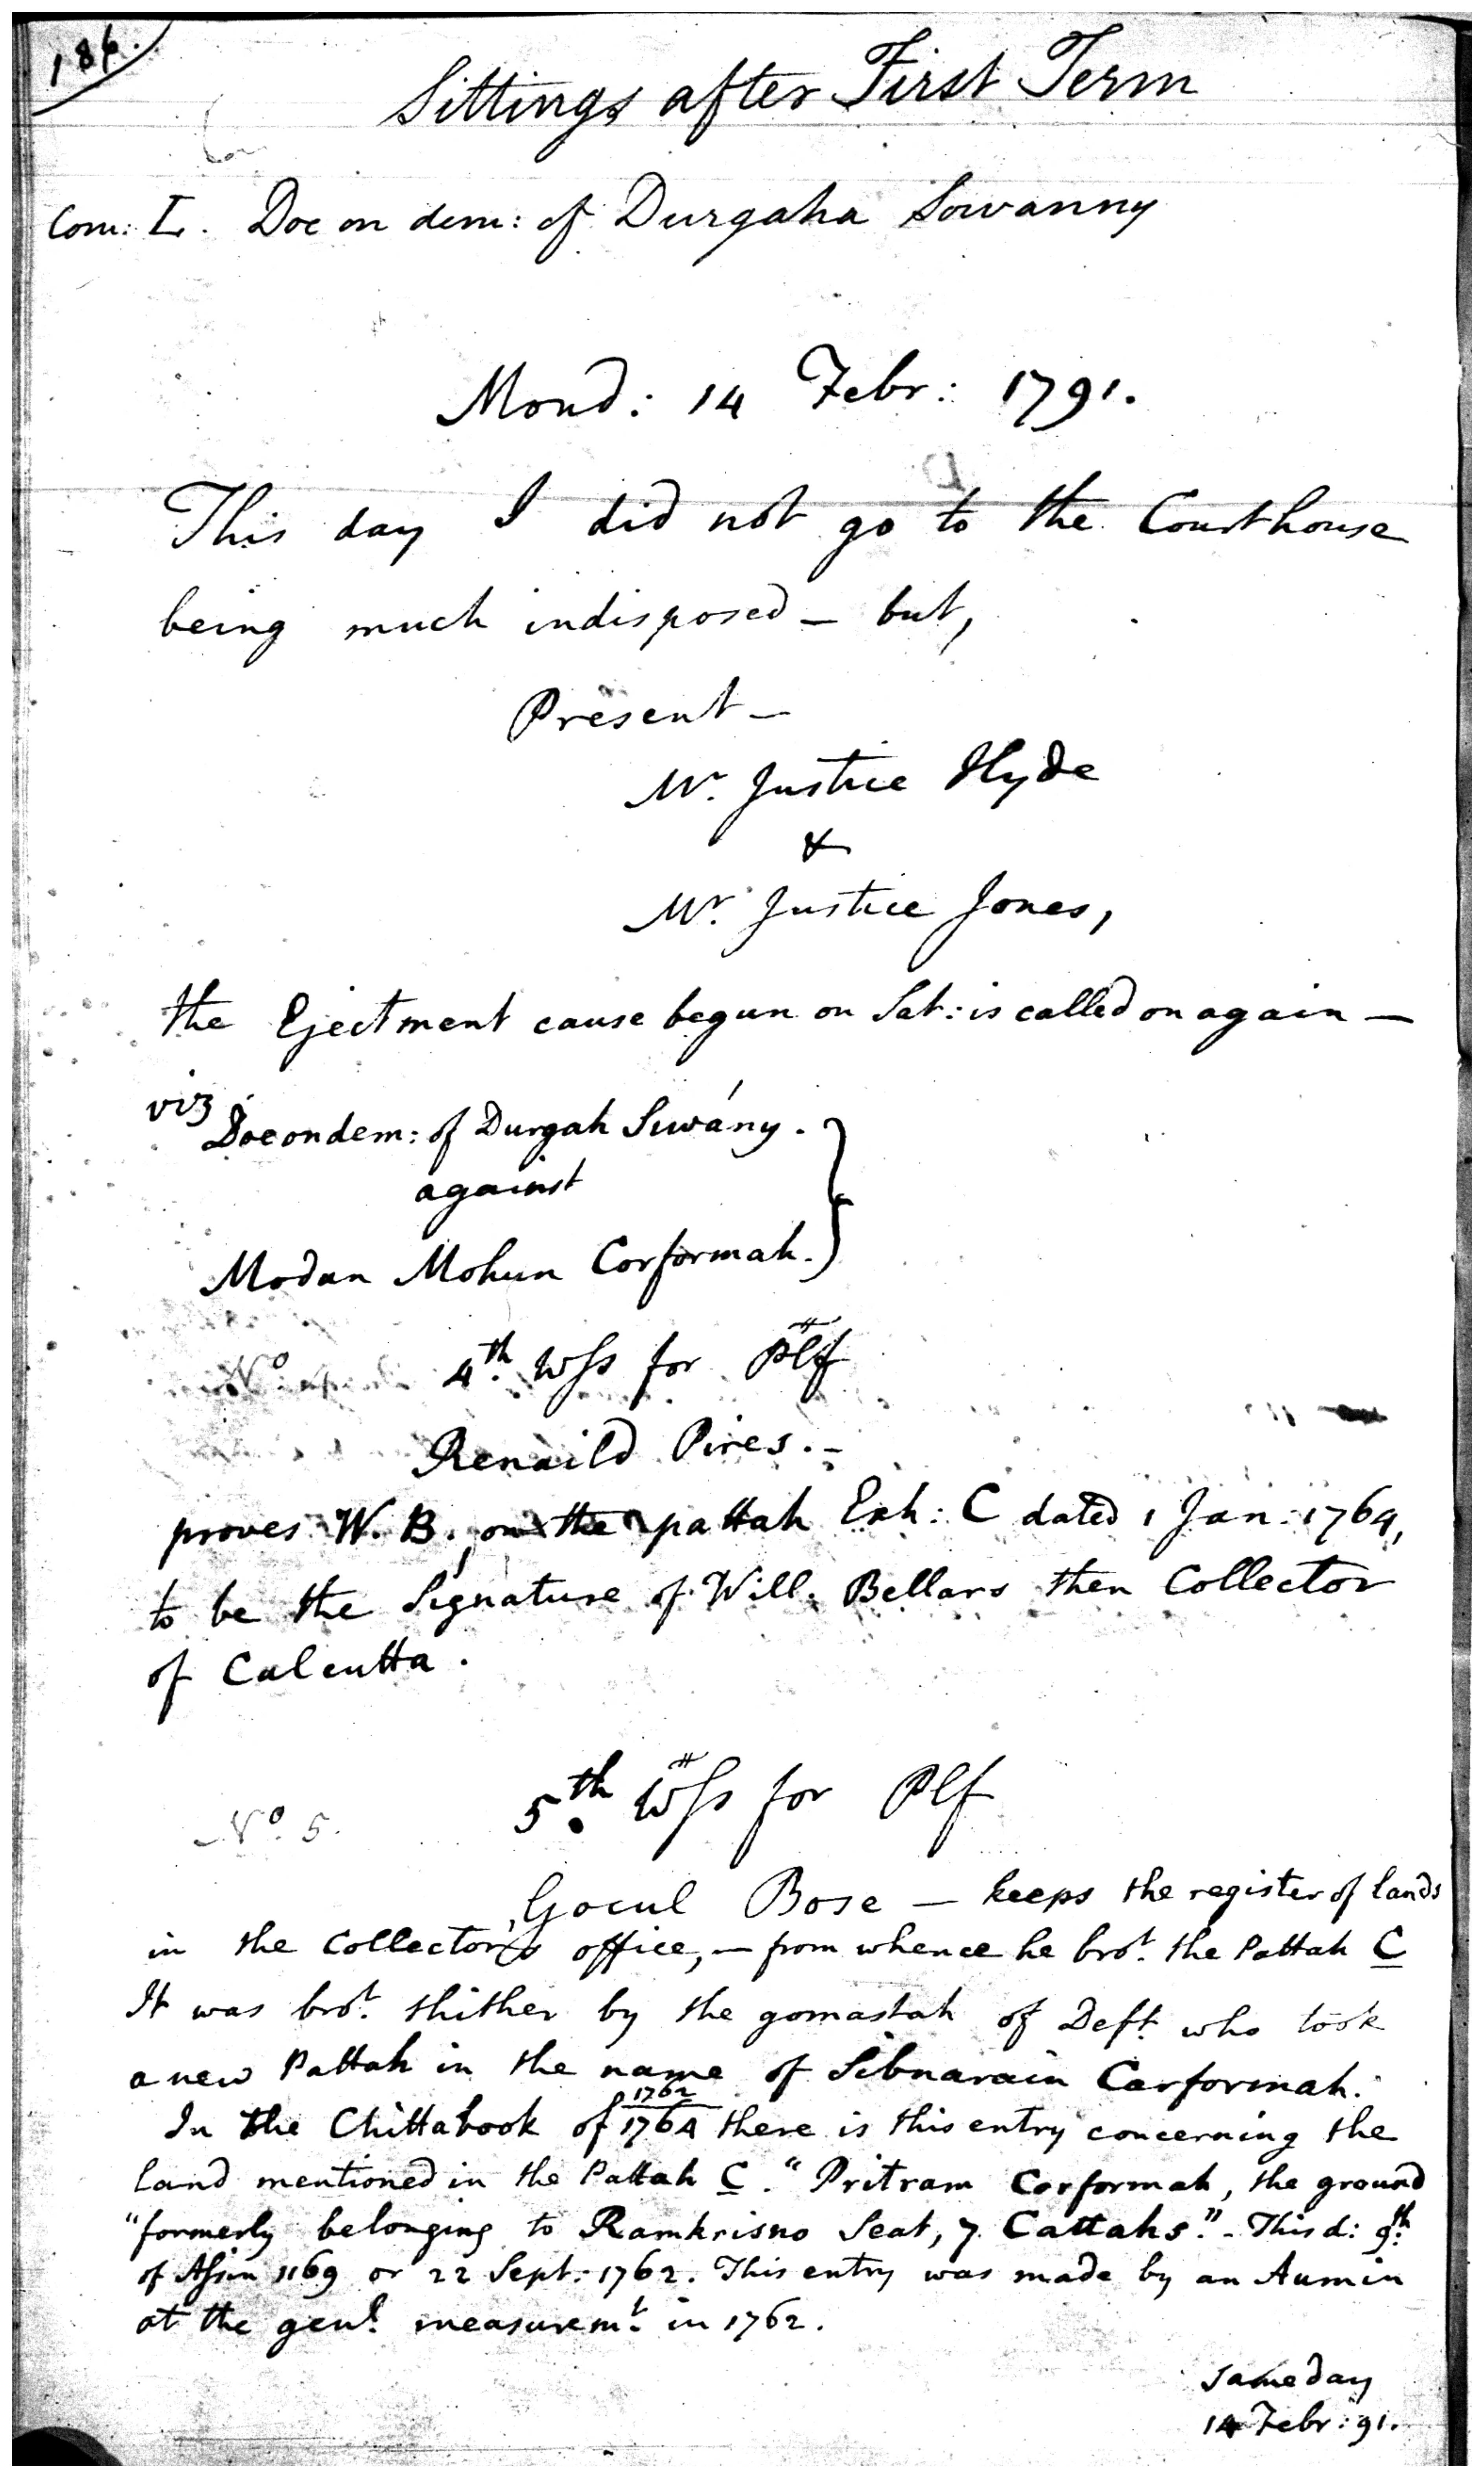 186.
Sittings after First Term
Com: L. Doe on dem: of Durgaha Sowanny
Mond: 14 Febr: 1791.
This day I did not go to the Courthouse
being much indisposed – but,
Present –
Mr. Justice Hyde
&
Mr. Justice Jones,
the Ejectment cause begun on Sat: is called on again –
viz
Doe on dem: of Durgah Suwány.
against
Modan Mohun Corformah.
No. 4th. Wss for Plf
Renaild Pires. –
proves W. B. on the pattah Exh: C dated 1 Jan: 1764,
to be the Signature of Will. Bellars then Collector
of Calcutta.
No. 5. 5th. Wss for Plf
Gocul Bose – keeps the register of lands
in the Collector's office, – from whence he brot. the Pattah C
It was brot. thither by the gomastah of Deft. who took
a new Pattah in the name of Sibnarain Carformah.
1762
In the Chittabook of 1764 there is this entry concerning the
land mentioned in the Pattah C. "Pritram Corformah, the ground
"formerly belonging to Ramkrisno Seat, 7 Cattahs." - This d: 9th.
of Assin 1169 or 22 Sept: 1762. This entry was made by an Aumin
at the genl. measuremt. in 1762.
Same day
14 Febr: 91.